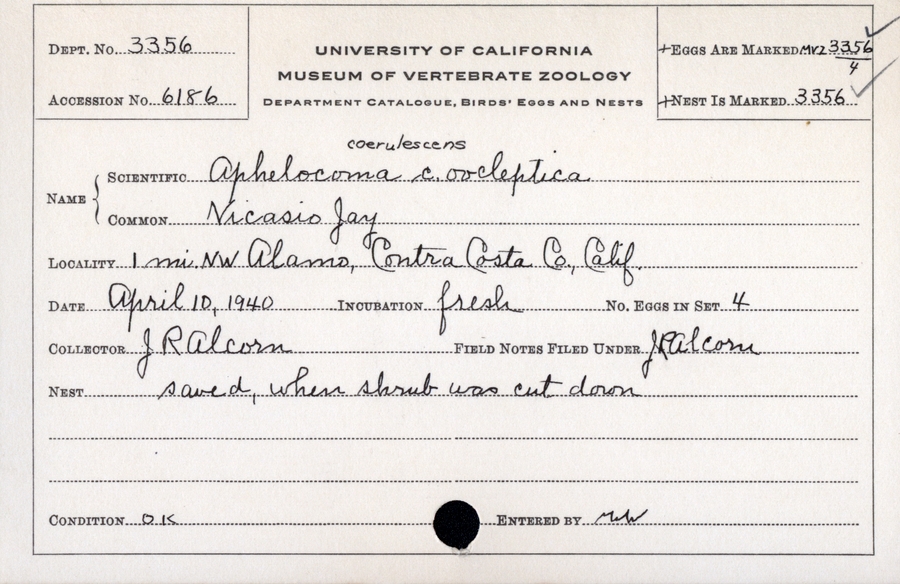 Dept. No. 3356
Accession No. 6186
UNIVERSITY OF CALIFORNIA
MUSEUM OF VERTEBRATE ZOOLOGY
Department Catalogue, Birds' Eggs and Nests
+Eggs Are Marked MVZ 3356
4
+Nest Is Marked 3356
coerulescens
Name { Scientific Aphelocoma c. oocleptica
Common Nicasio Jay
Locality 1 mi. NW Alamo, Contra Costa Co., Calif.
Date April 10, 1940 Incubation fresh No. Eggs in Set 4
Collector J R Alcorn Field Notes Filed Under JRAlcorn
Nest saved, when shrub was cut down
Condition OK Entered by